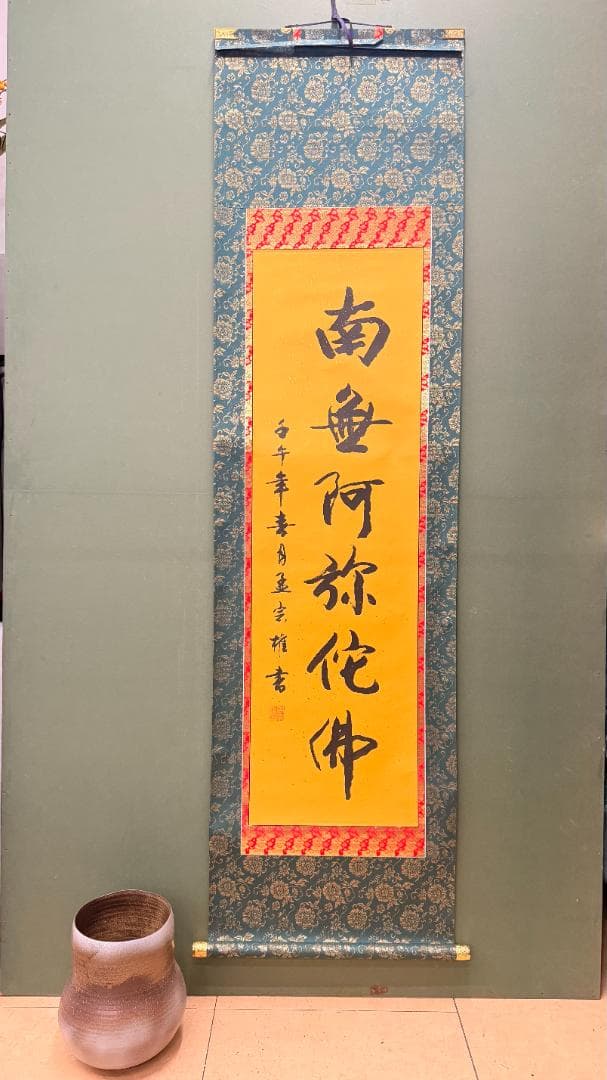 南無阿弥佗佛
壬午年春月孟宗雄書